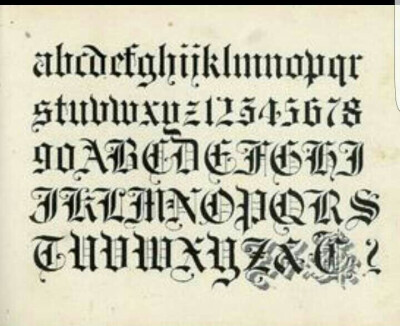 abcdefghijklmnopqr
stuvwxyz12345678
90ABCDEFGHI
JKLMNOPQRS
TUVWXYZ&